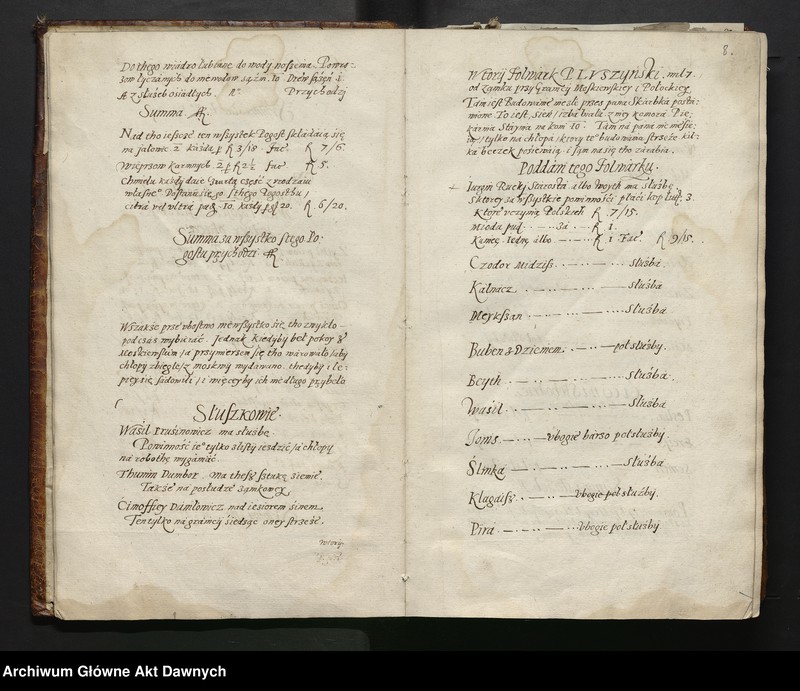 Do thego wiadro łabiane do wody noszenia. Powro-
zow łyczanych do niewodow sążni. 10 Drew sążeń 1.
A z służeb osiadłych Przychodzi
Summa.
Nad tho iescze ten wszystek Pogost składaią się
na iałowic 2 każda p 3/18. fac 7/6.
Wieprzow karmnych 2 p 2½ fac 5.
Chmielu każdy daie
właśne
citra vel ultra 10. każdy 20. 6/20.
Summa za wszystko s tego Po-
gostu przychodzi
Wszakże prze ubostwo nie wszystko się tho zwykło
podczas wybierać. Jednak kiedyby beł pokoy z
Moskiewskim a przymierzem się tho warowało, aby
chłopy zbiegłe z Moskwy wydawano, thedyby i le-
piey się sadowili i więceyby ich niedługo przybeło
Słuszkowie.
Wasil Prusinowicz ma służbę
Powinność ie° tylko z listy iezdzić, a chłopy
na robothę wyganiać
Thumin Dumbor. ma thesz sztukę ziemie.
Także na posłudze zamkowey
Cimoffiey Daniłowicz nad iesiorem Sinem.
Ten tylko na granicy siedząc oney strzeże.
Wtory
8.
Wtóry Folwark P. LUSZYŃSKI. mil 7.
od zamku przy Granicy Moskiewskiey i Połockiey
Tam iest Budowanie nie złe przez pana Skarbka posta-
wione. To iest, Sień, izba biała z niey komora. Pie-
karnia Staynia na koni 10. Tam na pana nie
tylko na chłopa, ktory te° budowania strzeże kil-
ka beczek posiewaią i tam na się tho zarabia.
Poddani tego Folwarku.
Jurgin Rucki Starosta albo Woyth ma Służbę
z ktorey za wszystkie powinności płaci kop 3.
Ktore uczynią Polskich 7/15.
Mioda pud za 1.
Kunicę Jednę albo 1 Fac 9/15.
Czodor Midziss służba
Kalnacz służba
Meykszan służba
Buben z Dziemem poł służby.
Beyth służba
Waśil służba
Jonis ubogie barzo poł służby
Ślinka służba
Klagaiss ubogie poł służby.
Pira ubogie poł służby
Archiwum Główne Akt Dawnych